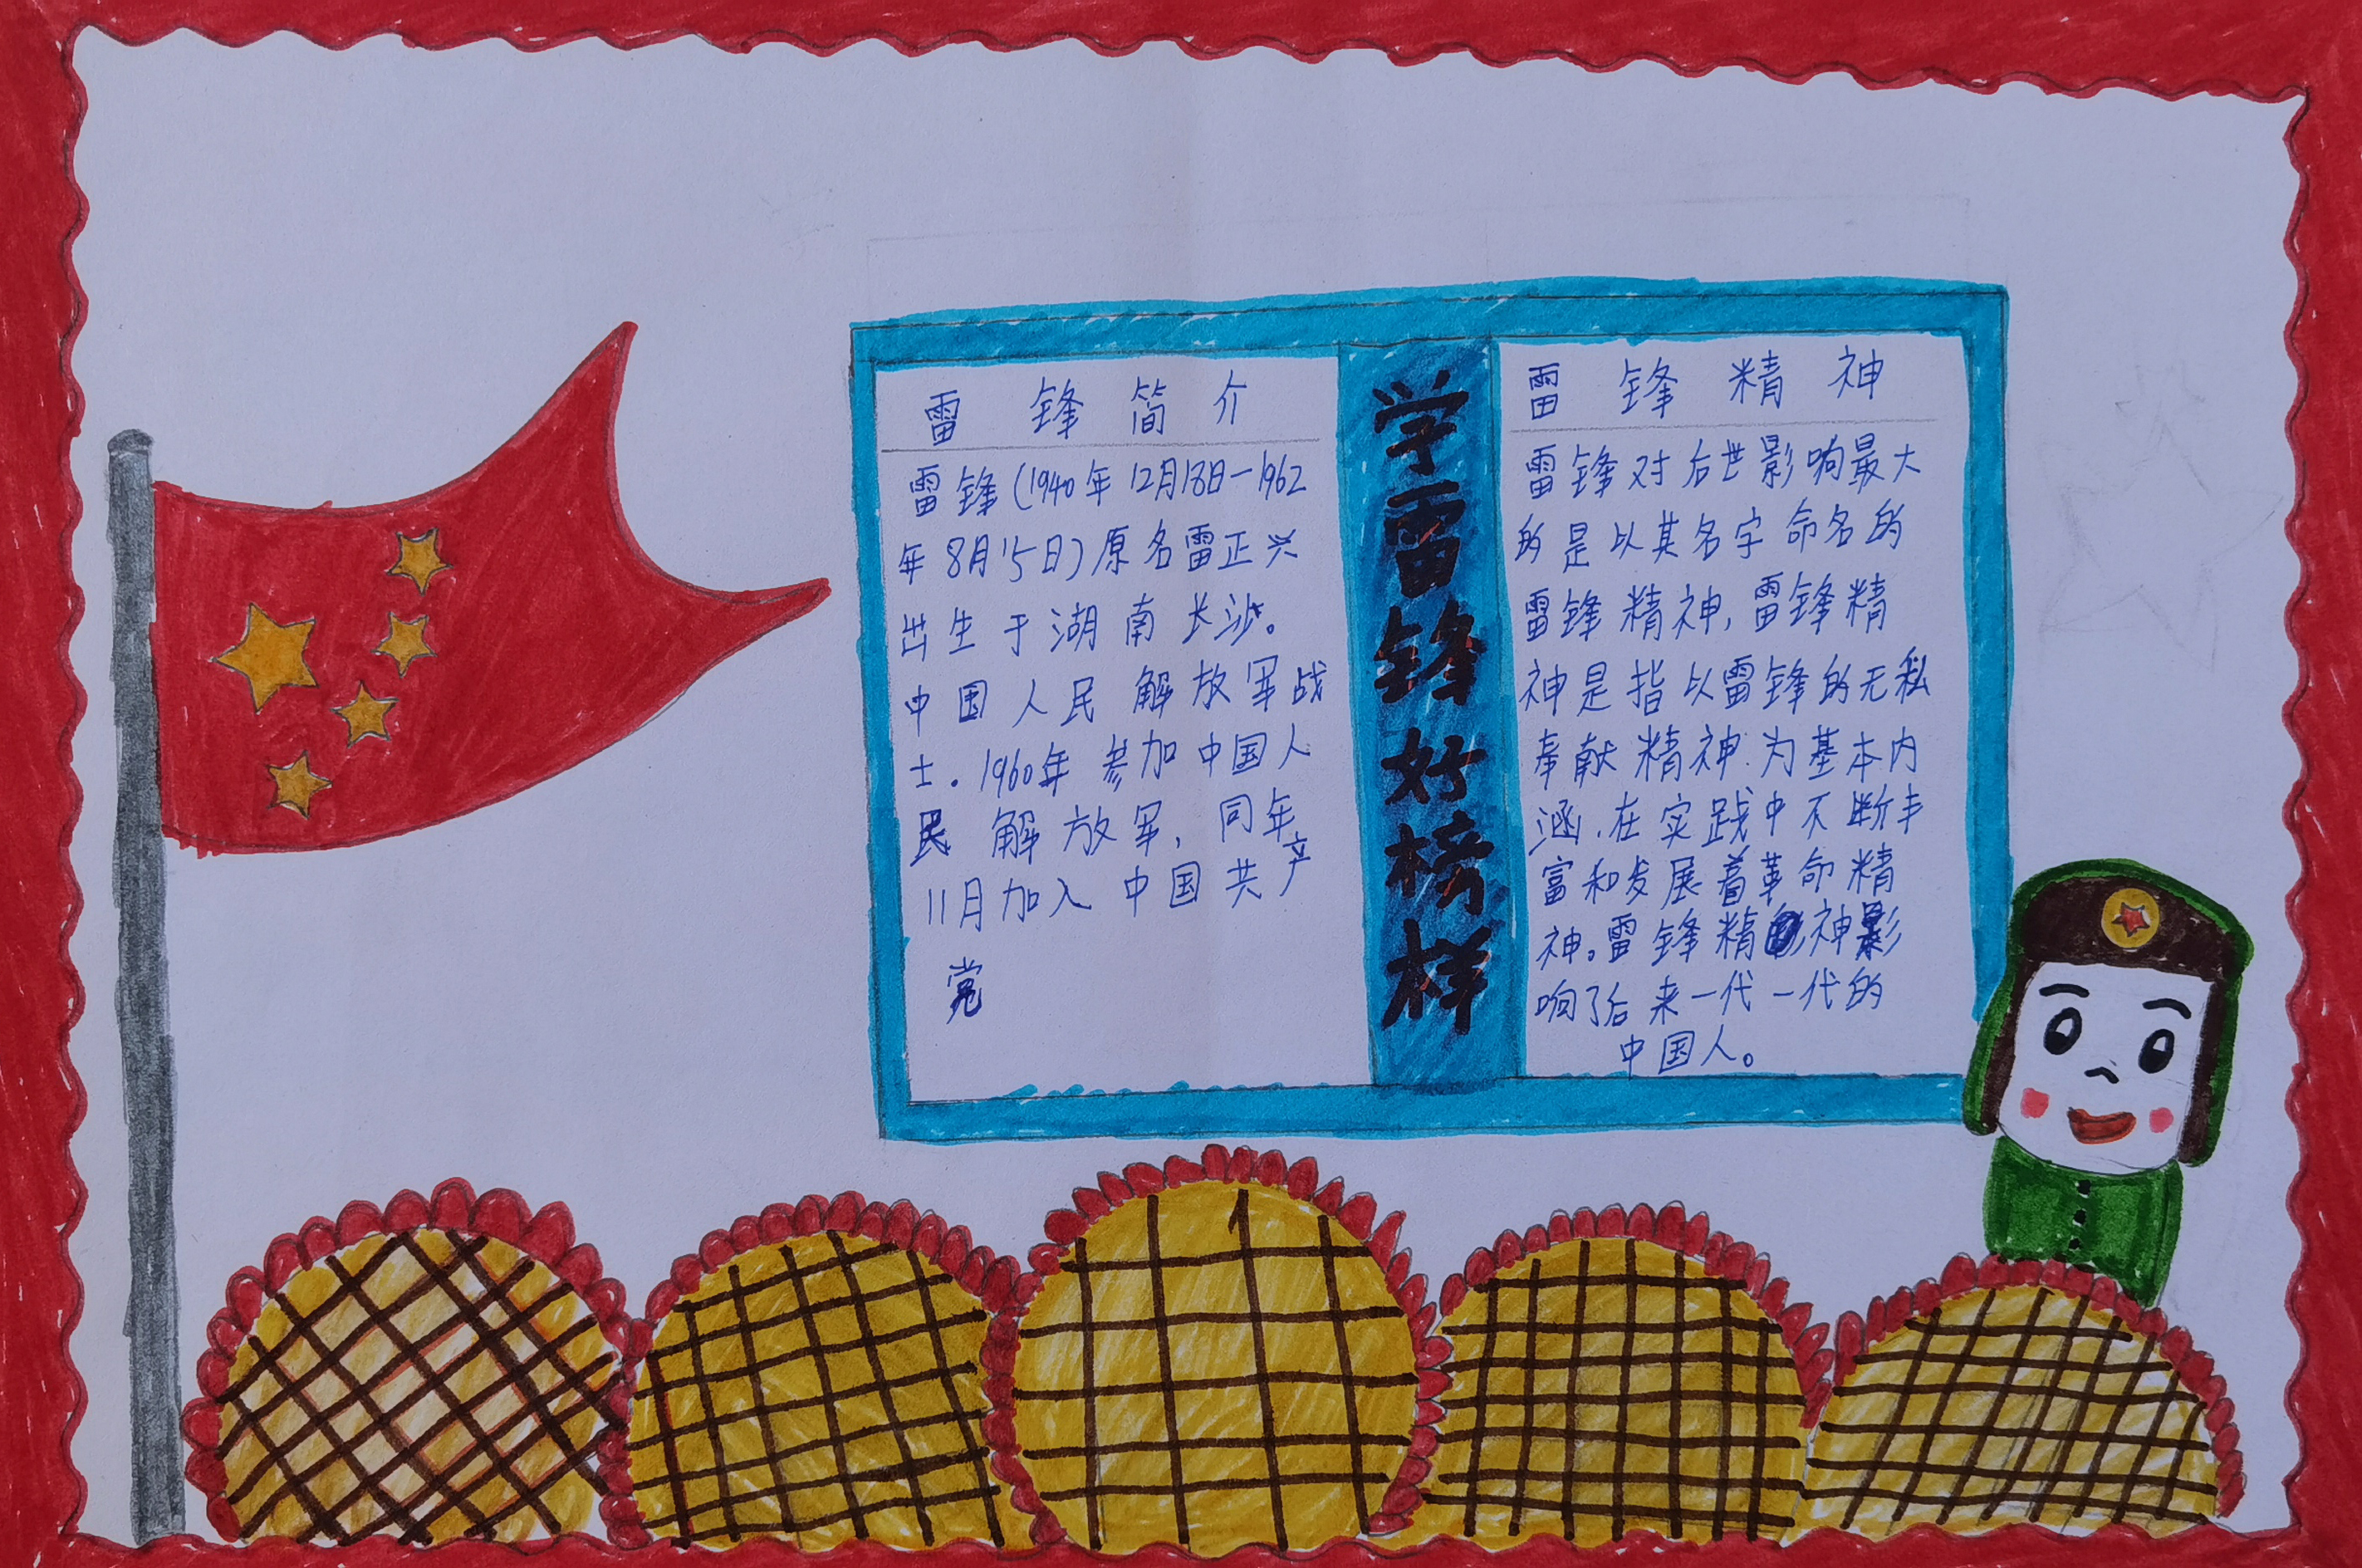 雷锋简介
雷锋(1940年12月18日-1962
年8月15日)原名雷正兴
出生于湖南长沙。
中国人民解放军战
士。1960年参加中国人
民解放军,同年
11月加入中国共产
党
学雷锋好榜样
雷锋精神
雷锋对后世影响最大
的是以其名字命名的
雷锋精神,雷锋精
神是指以雷锋的无私
奉献精神为基本内
涵.在实践中不断丰
富和发展着革命精
神。雷锋精神影
响了后来一代一代的
中国人。